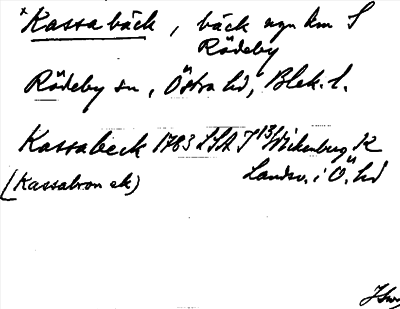 × Kassabäck, bäck ngn km S
Rödeby
Rödeby sn, Östra hd, Blek. l.
Kassabeck 1783 LSA J 13/Wickenburg K
(Kassabron ek) Landsv. i Ö. hd